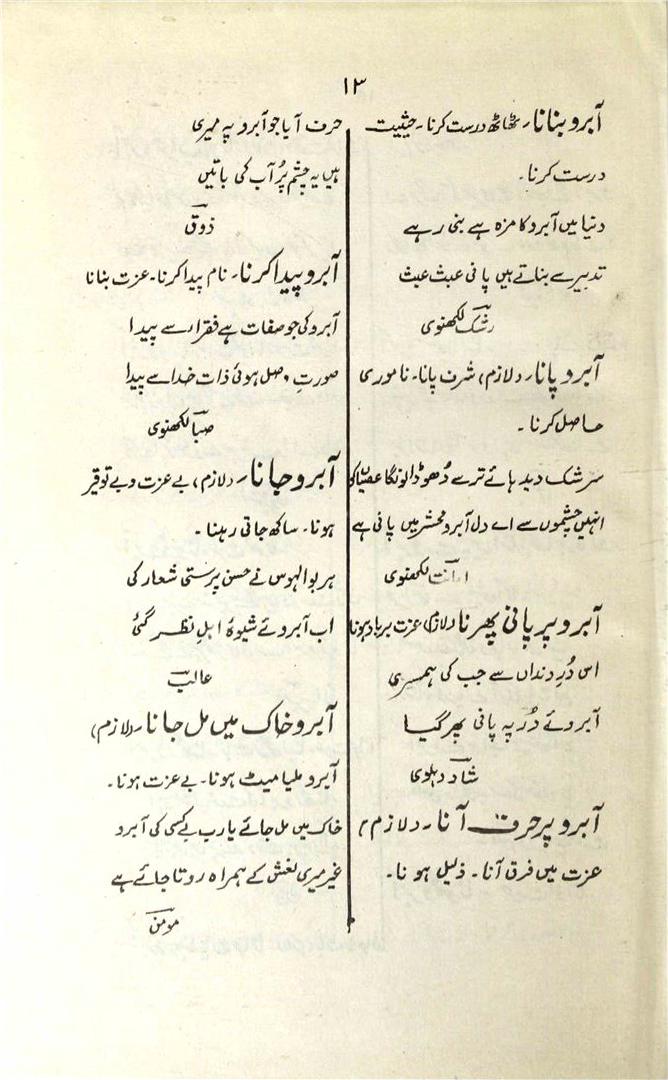 ۱۳
آبرو بنانا۔ ٹھاٹھ درست کرنا۔ حیثیت
درست کرنا۔
دنیا میں آبرو کا مزہ ہے بنی رہے
تدبیر سے بناتے ہیں پانی عبث عبث
رشک لکھنوی
آبرو پانا۔ (لازم) شرف پانا۔ ناموری
حاصل کرنا۔
سرشک دید ہائے ترے دُھو ڈالونگا عصیاں کو
انہیں چشموں سے اے دل آبرو محشر میں پانی ہے
امانت لکھنوی
آبرو پر پانی پھرنا (لازم) عزت برباد ہونا
اس دُرِ دنداں سے جب کی ہمسری
آبروئے دُر پہ پانی پھر گیا
شاد دہلوی
آبرو پر حرف آنا۔ (لازم)
عزت میں فرق آنا۔ ذلیل ہونا۔
حرف آیا جو آبرو پہ میری
ہیں یہ چشم پُر آب کی باتیں
ذوق
آبرو پیدا کرنا۔ نام پیدا کرنا۔ عزت بنانا
آبرو کی جو صفات ہے فقراء سے پیدا
صورتِ وصل ہوئی ذات خدا سے پیدا
صبا لکھنوی
آبرو جانا۔ (لازم) بے عزت و بے توقیر
ہونا۔ ساکھ جاتی رہنا۔
ہر بوالہوس نے حسن پرستی شعار کی
اب آبروئے شیوۂ اہلِ نظر گئی
غالب
آبرو خاک میں مل جانا۔ (لازم)
آبرو ملیا میٹ ہونا۔ بے عزت ہونا۔
خاک میں مل جائے یارب بے کسی کی آبرو
غیر میری نعش کے ہمراہ روتا جائے ہے
مومن